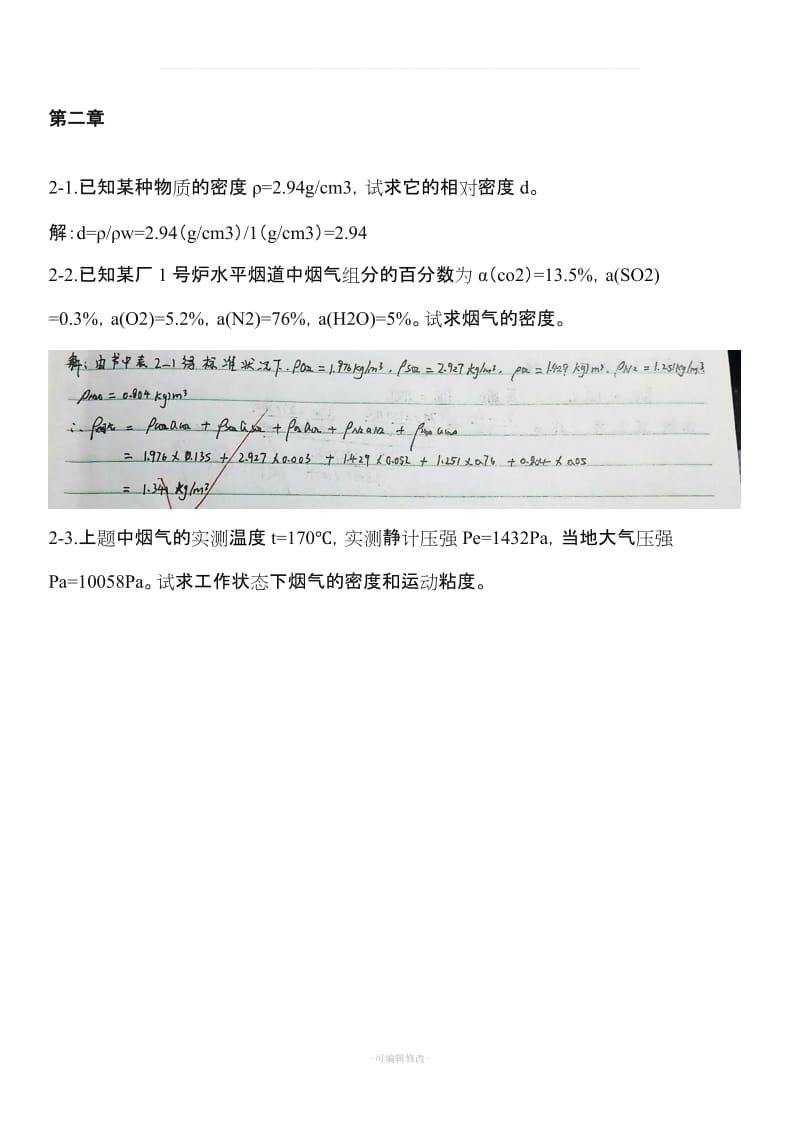 第二章
2-1.已知某种物质的密度 ρ=2.94g/cm3，试求它的相对密度 d。
解：d=ρ/ρw=2.94（g/cm3）/1（g/cm3）=2.94
2-2.已知某厂 1 号炉水平烟道中烟气组分的百分数为 α（co2）=13.5%，a(SO2)
=0.3%，a(O2)=5.2%，a(N2)=76%，a(H2O)=5%。试求烟气的密度。
解：由书中表2-1得标准状况下，ρCO2=1.976kg/m³，ρSO2=2.927kg/m³，ρO2=1.429kg/m³，ρN2=1.251kg/m³
ρH2O=0.804kg/m³
∴ = ρCO2αCO2+ρSO2αSO2+ρO2αO2+ρN2αN2+ρH2OαH2O
=1.976×0.135+2.927×0.003+1.429×0.052+1.251×0.76+0.804×0.05
= kg/m³
2-3.上题中烟气的实测温度 t=170℃，实测静计压强 Pe=1432Pa，当地大气压强
Pa=10058Pa。试求工作状态下烟气的密度和运动粘度。
-可编辑修改-